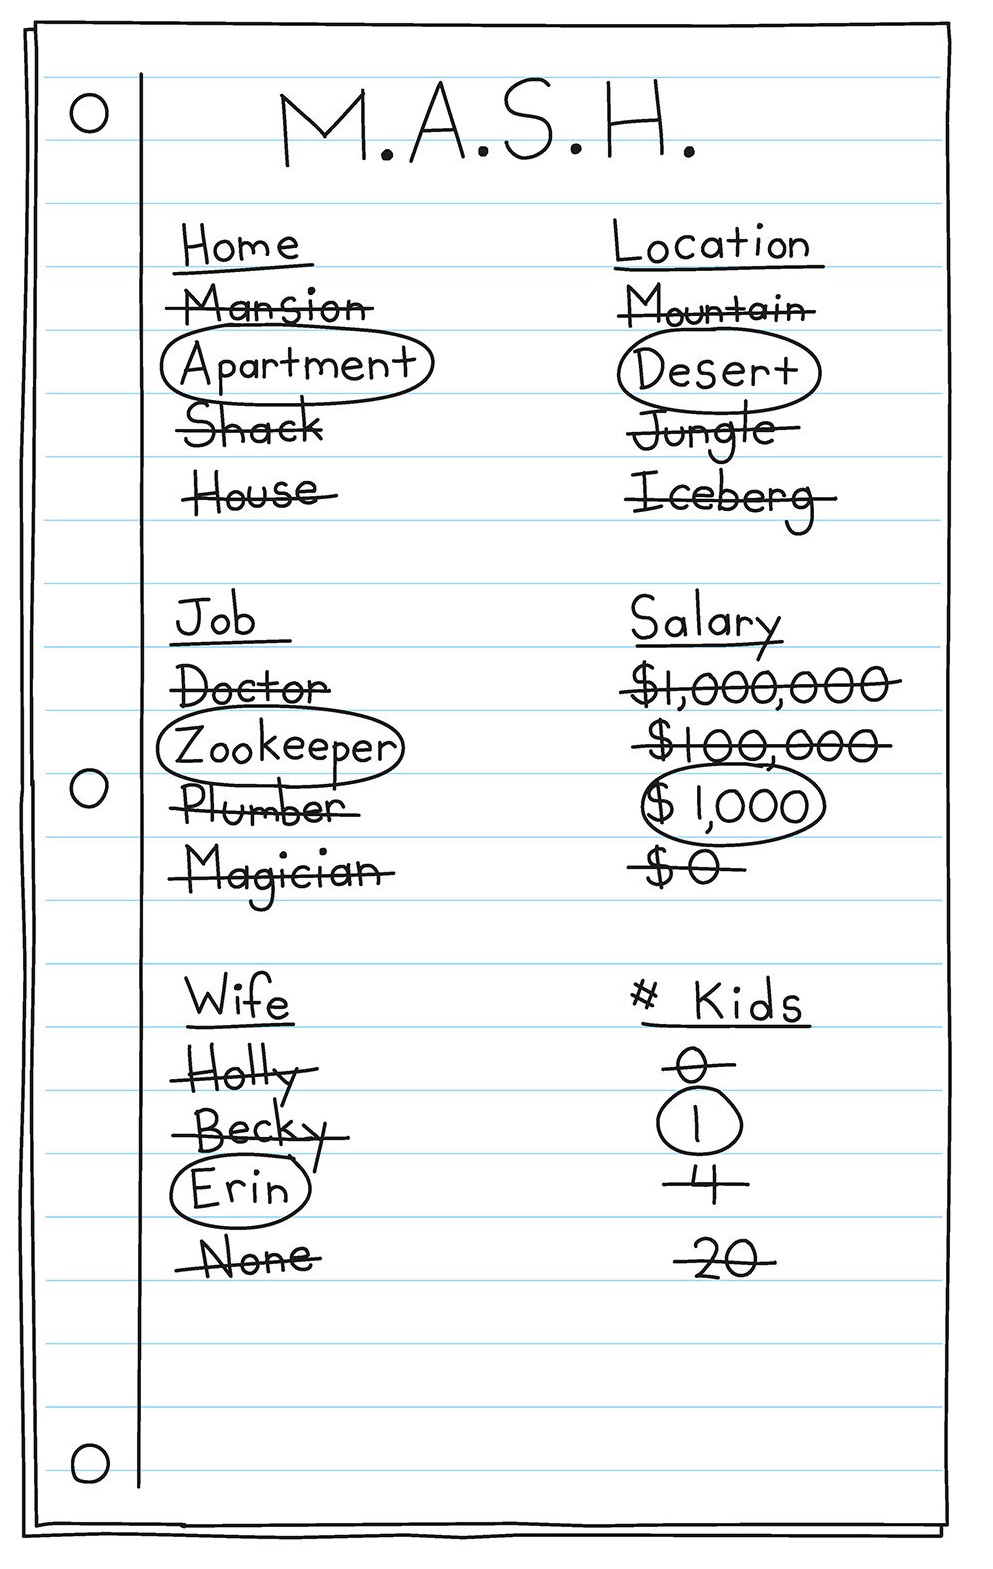 M.A.S.H.
Home
Mansion
Apartment
Shack
House
Location
Mountain
Desert
Jungle
Iceberg
Job
Doctor
Zookeeper
Plumber
Magician
Salary
$1,000,000
$100,000
$ 1,000
$ 0
Wife
Holly
Becky
Erin
None
# Kids
0
1
4
20